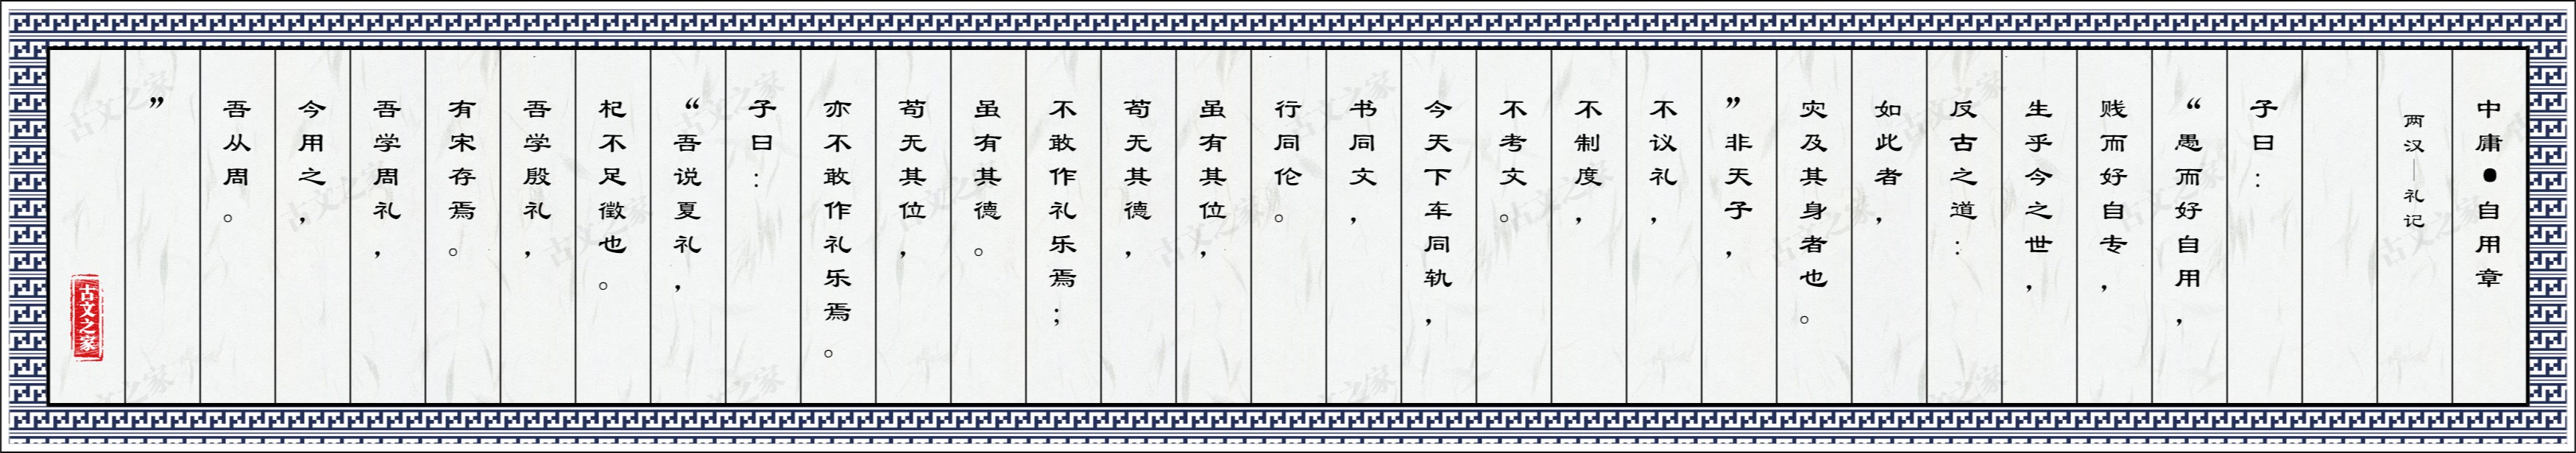 中庸●自用章
两汉—礼记
子曰：
“愚而好自用，
贱而好自专，
生乎今之世，
反古之道：
如此者，
灾及其身者也。
”非天子，
不议礼，
不制度，
不考文。
今天下车同轨，
书同文，
行同伦。
虽有其位，
苟无其德，
不敢作礼乐焉；
虽有其德。
苟无其位，
亦不敢作礼乐焉。
子曰：
“吾说夏礼，
杞不足徵也。
吾学殷礼，
有宋存焉。
吾学周礼，
今用之，
吾从周。
”
古文之家